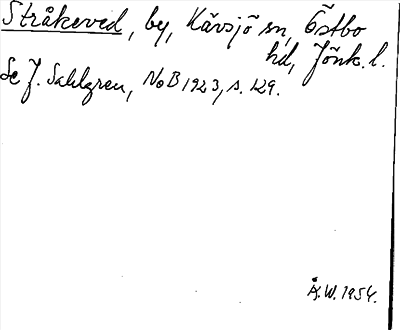 Stråkeved, by, Kävsjö sn, Östbo
hd, Jönk. l.
Se J. Sahlgren, NoB 1923, s. 129.
Å.W. 1954.